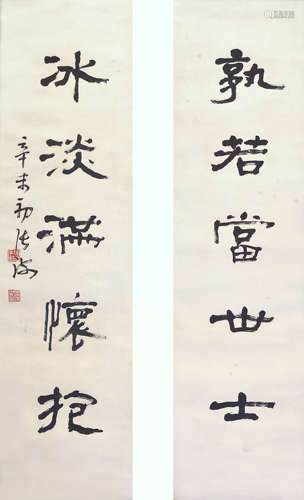 孰若當世士
冰淡滿懷抱
辛未初張海